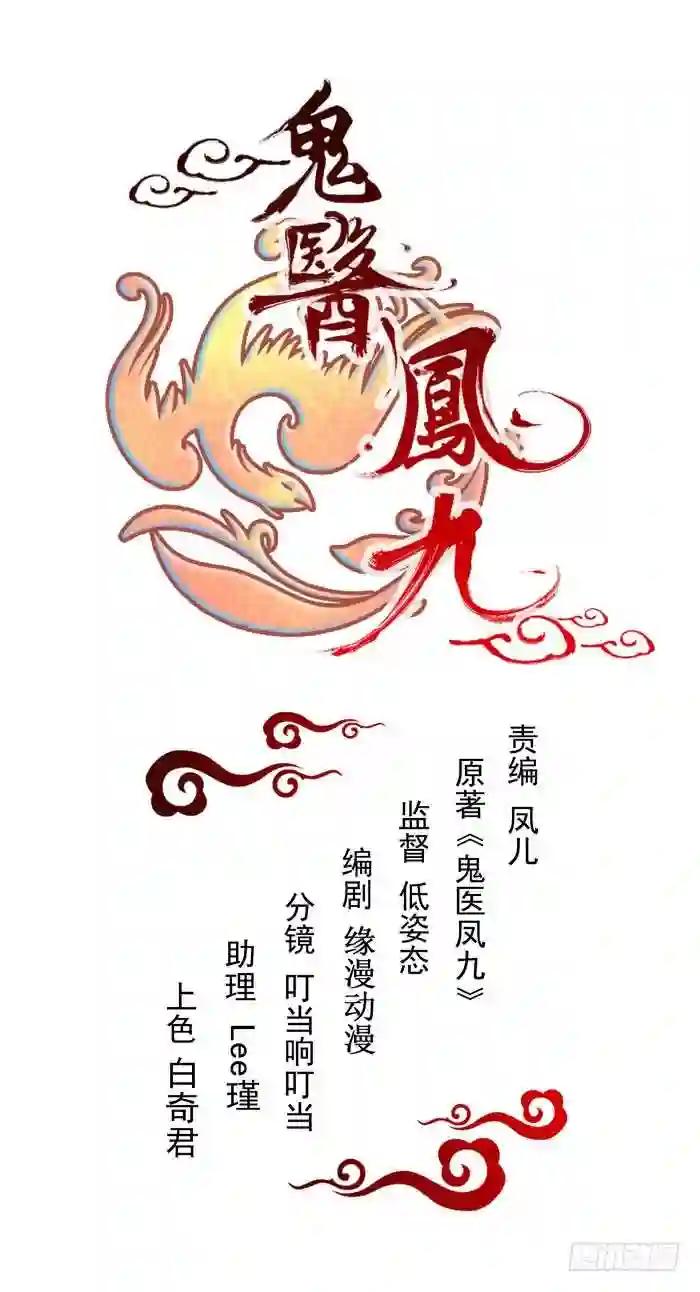 鬼醫鳳九
责编 凤儿
原著《鬼医凤九》
监督 低姿态
编剧 缘漫动漫
分镜 叮当响叮当
助理 Lee瑾
上色 白奇君